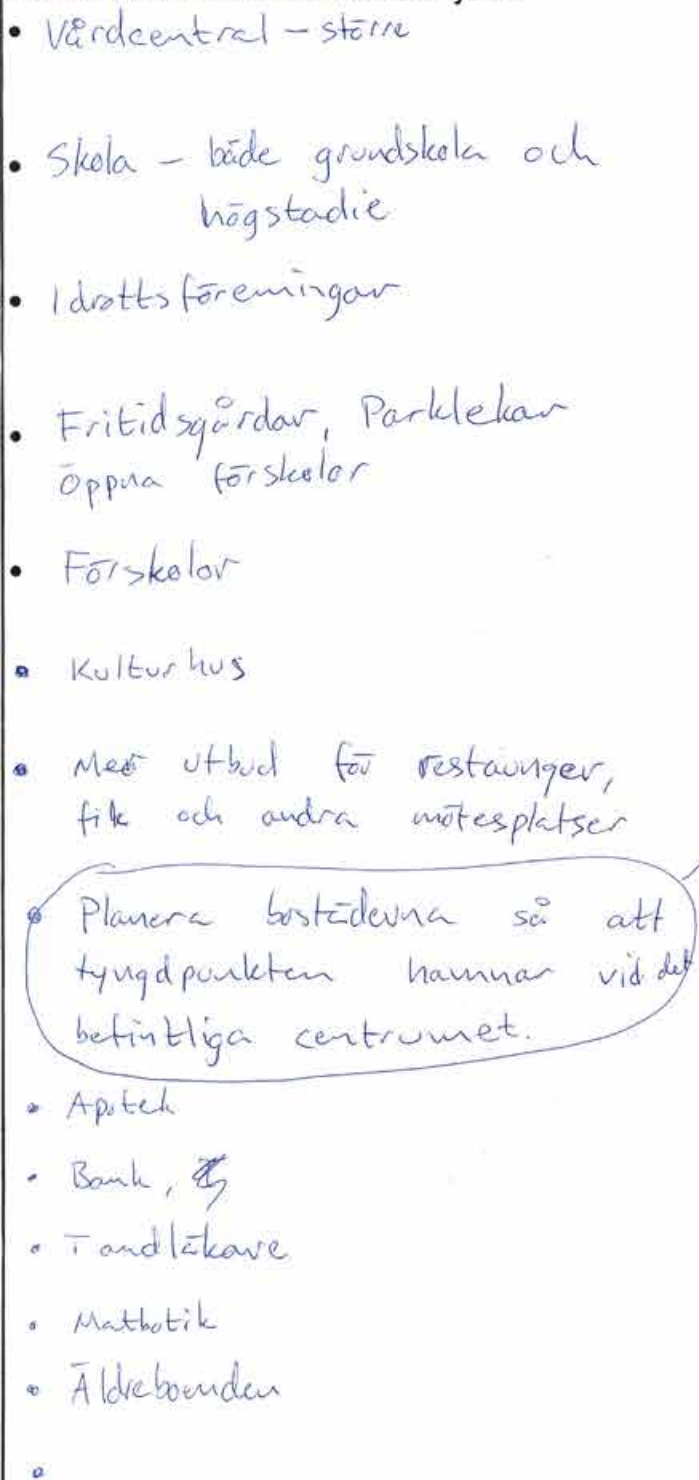 • Vårdcentral – större
• Skola – både grundskola och
högstadie
• Idrottsföreningar
• Fritidsgårdar, Parklekar
Öppna förskolor
• Förskolor
• Kulturhus
• Mer utbud för restaunger,
fik och andra mötesplatser
• Planera bostäderna så att
tyngdpunkten hamnar vid det
befintliga centrumet.
• Apotek
• Bank,
• Tandläkare
• Matbotik
• Äldreboenden
•